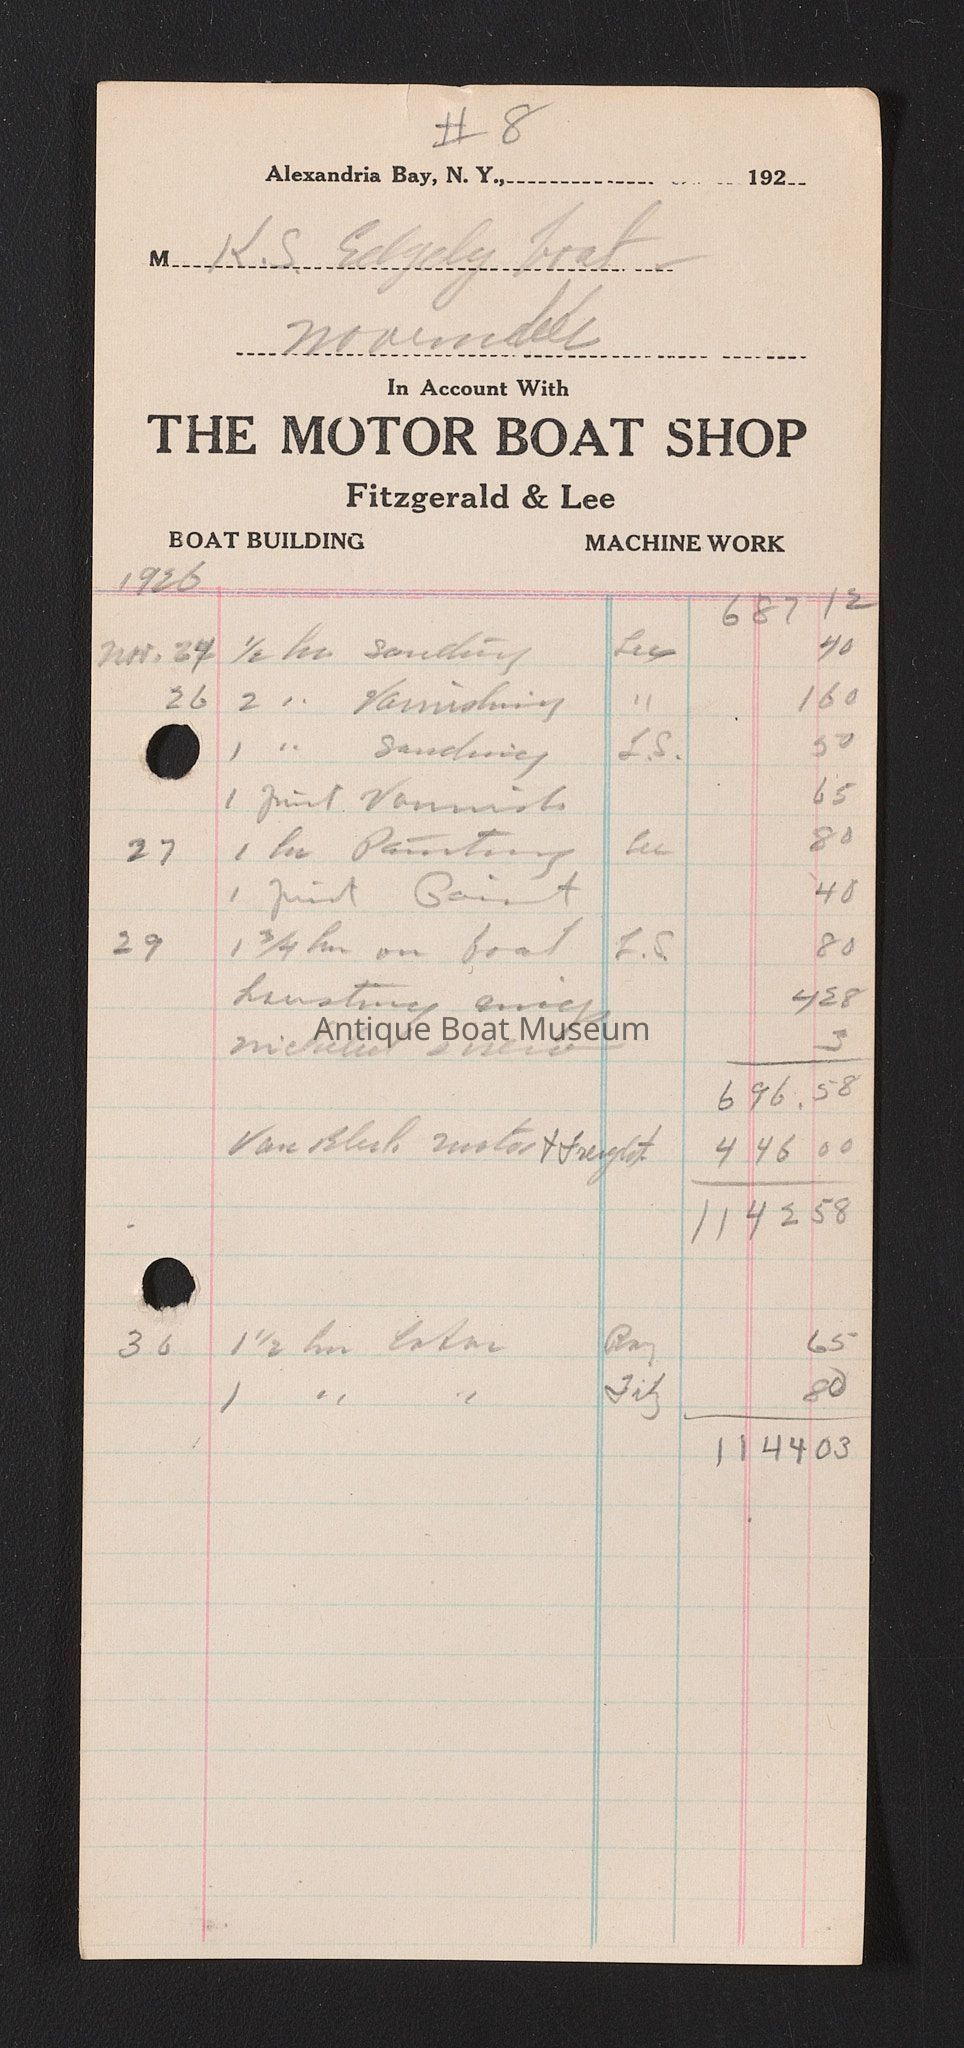 # 8
Alexandria Bay, N. Y., 192
M K.S. Edgely boat
November
In Account With
THE MOTOR BOAT SHOP
Fitzgerald & Lee
BOAT BUILDING MACHINE WORK
1926
687 12
Nov. 24 1/2 hr Sanding Lee 40
26 2 " Varnishing " 1 60
1 " Sanding L.S. 50
1 pint Varnish 65
27 1 hr Painting Lee 80
1 pint Paint 40
29 1 3/4 hr on boat L.S. 80
4 28
Antique Boat Museum
3
696.58
Van Blerk motor & Freight 446 00
1142 58
30 1 1/2 hr labor Ray 65
1 " " Fitz 80
1144 03